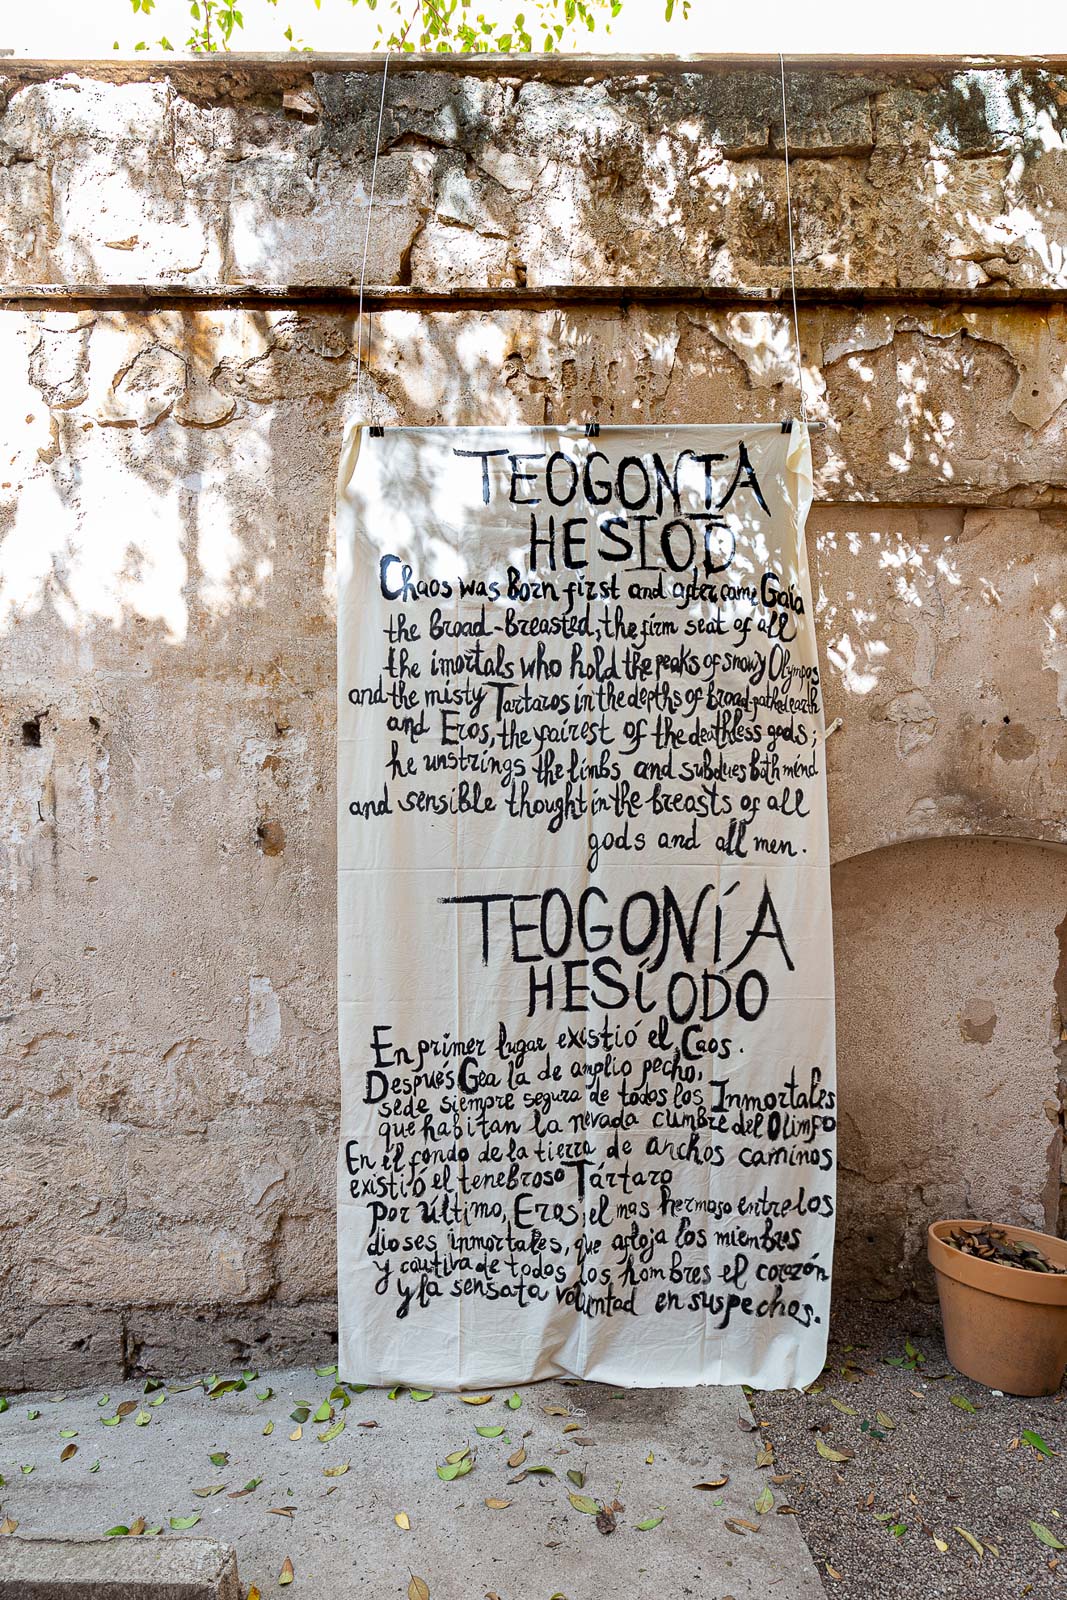 TEOGONIA
HESIOD
Chaos was Born first and after came Gaia
the Broad-Breasted, the firm seat of all
the imortals who hold the peaks of snowy Olympos
and the misty Tartaros in the depths of broad-pathed earth
and Eros, the fairest of the deathless gods;
he unstrings the limbs and subdues both mind
and sensible thought in the breasts of all
gods and all men.
TEOGONÍA
HESÍODO
En primer lugar existió el Caos.
Después Gea la de amplio pecho,
sede siempre segura de todos los Inmortales
que habitan la nevada cumbre del Olimpo
En el fondo de la tierra de anchos caminos
existió el tenebroso Tártaro
por último, Eros, el mas hermoso entre los
dioses inmortales, que afloja los miembros
y cautiva de todos los hombres el corazón
y la sensata voluntad en sus pechos.